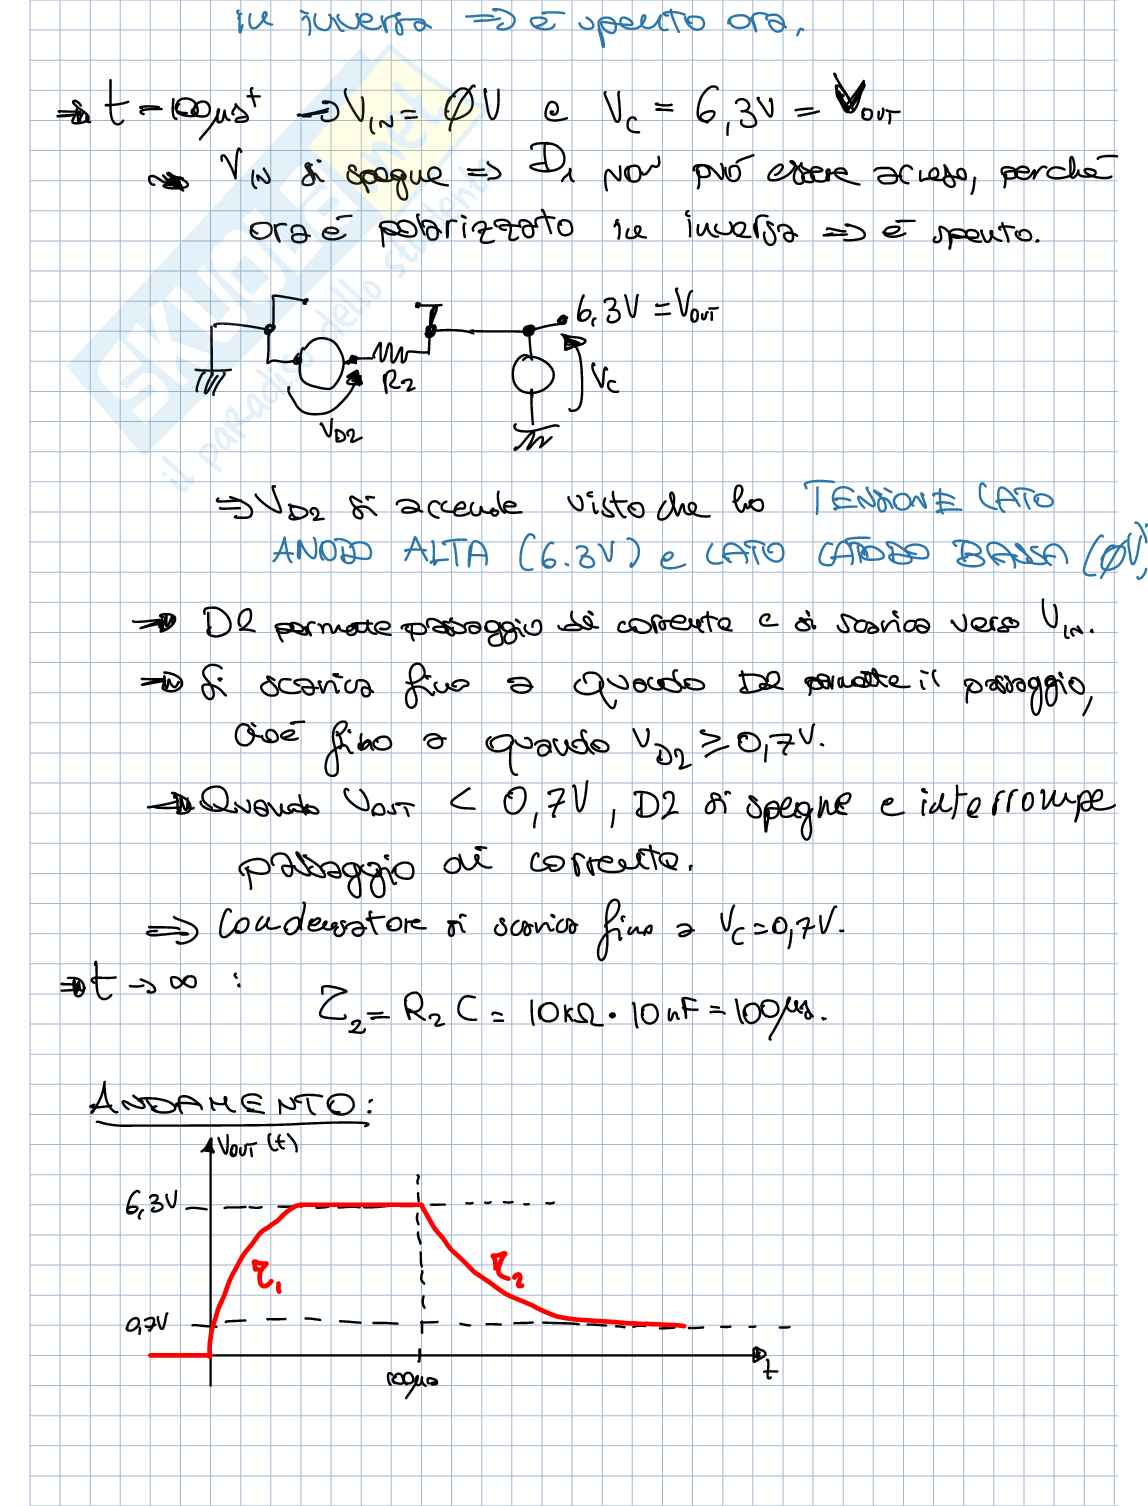 in inversa => è spento ora.
=> t = 100μs⁺ → V_IN = ØV e V_C = 6,3V = V_OUT
→ V_IN si spegne => D₁ non può essere acceso, perché
ora è polarizzato in inversa => è spento.
6,3V = V_OUT
R2
V_C
V_D2
=> V_D2 si accende visto che ho TENSIONE LATO
ANODO ALTA (6.3V) e LATO CATODO BASSA (ØV)
→ D2 permette passaggio di corrente e si scarica verso V_IN.
→ Si scarica fino a quando D2 permette il passaggio,
cioè fino a quando V_D2 ≥ 0,7V.
→ Quando V_OUT < 0,7V, D2 si spegne e interrompe
passaggio di corrente.
=> Condensatore si scarica fino a V_C = 0,7V.
=> t → ∞ :
τ₂ = R₂ C = 10kΩ · 10nF = 100μs.
ANDAMENTO:
V_OUT (t)
6,3V
τ₁
τ₂
0,7V
100μs
t
SKUOLA.net
il paradiso dello studente